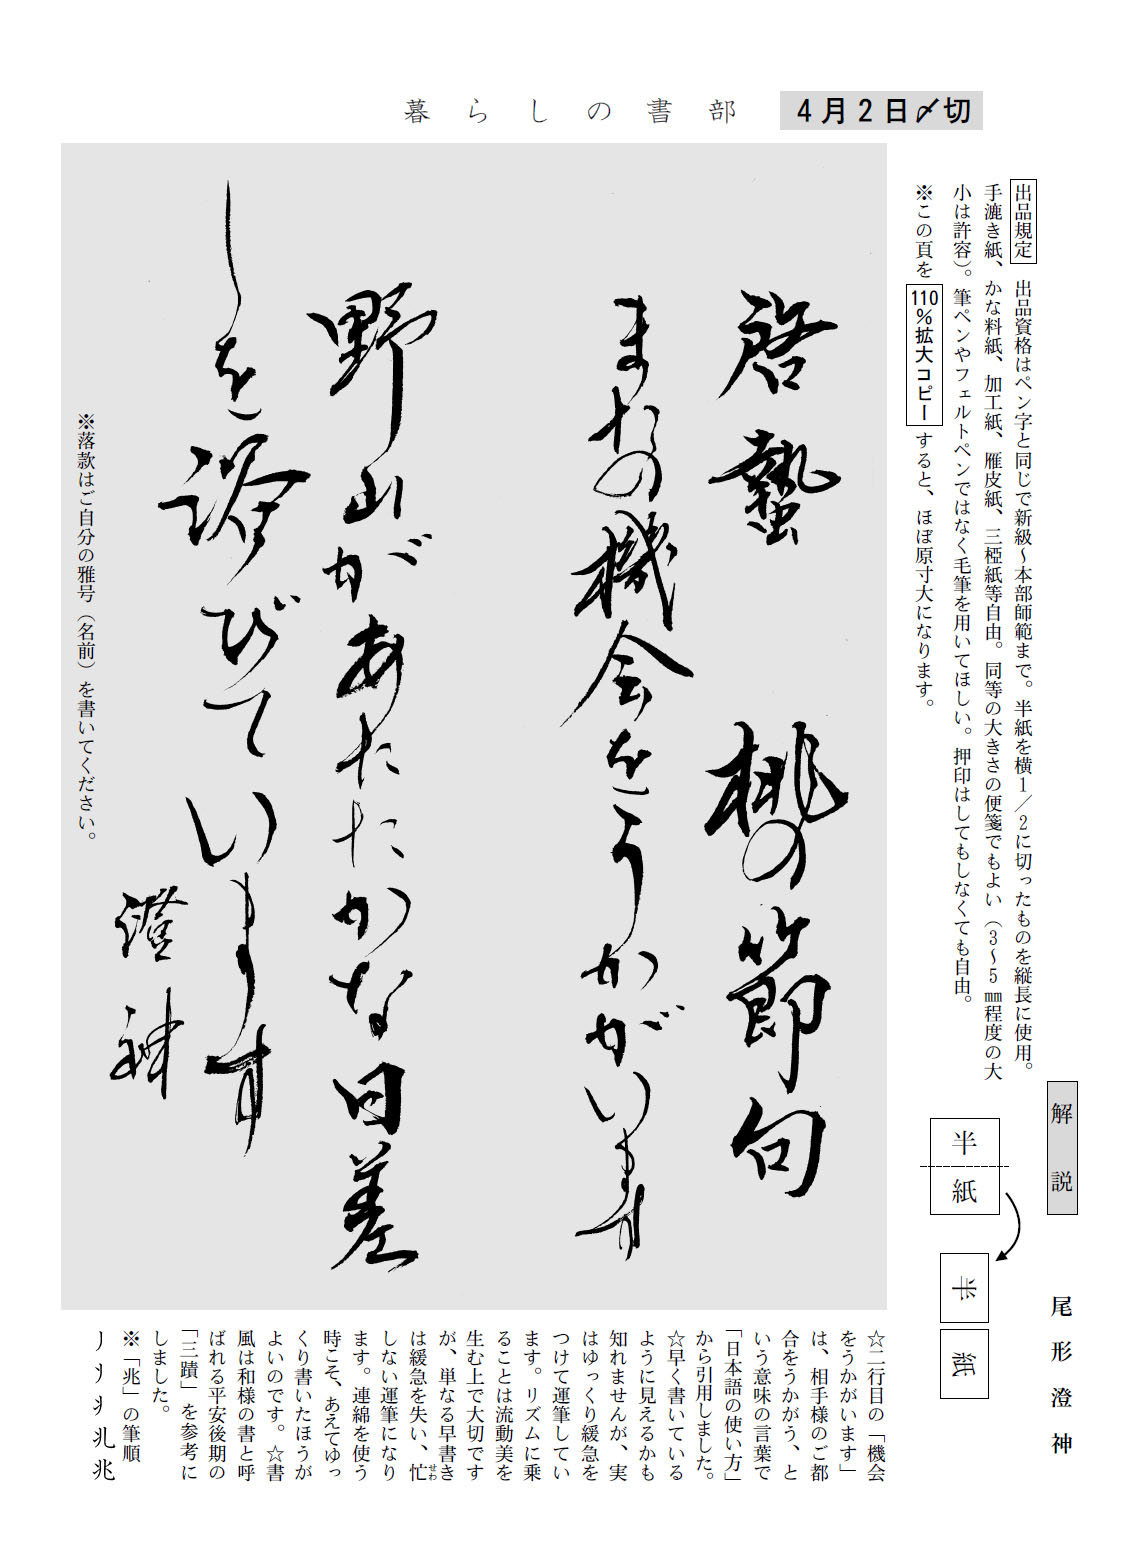 暮らしの書部
4月2日〆切
出品規定 出品資格はペン字と同じで新級～本部師範まで。半紙を横1／2に切ったものを縦長に使用。
手漉き紙、かな料紙、加工紙、雁皮紙、三椏紙等自由。同等の大きさの便箋でもよい（3～5㎜程度の大
小は許容）。筆ペンやフェルトペンではなく毛筆を用いてほしい。押印はしてもしなくても自由。
※この頁を 110％拡大コピー すると、ほぼ原寸大になります。
啓蟄 桃の節句
またの機会をうかがいます
野山があたたかな日差
しを浴びています
澄神
※落款はご自分の雅号（名前）を書いてください。
解説
尾形澄神
半
紙
半
紙
☆二行目の「機会
をうかがいます」
は、相手様のご都
合をうかがう、と
いう意味の言葉で
「日本語の使い方」
から引用しました。
☆早く書いている
ように見えるかも
知れませんが、実
はゆっくり緩急を
つけて運筆してい
ます。リズムに乗
ることは流動美を
生む上で大切です
が、単なる早書き
は緩急を失い、忙せわ
しない運筆になり
ます。連綿を使う
時こそ、あえてゆっ
くり書いたほうが
よいのです。☆書
風は和様の書と呼
ばれる平安後期の
「三蹟」を参考に
しました。
※「兆」の筆順